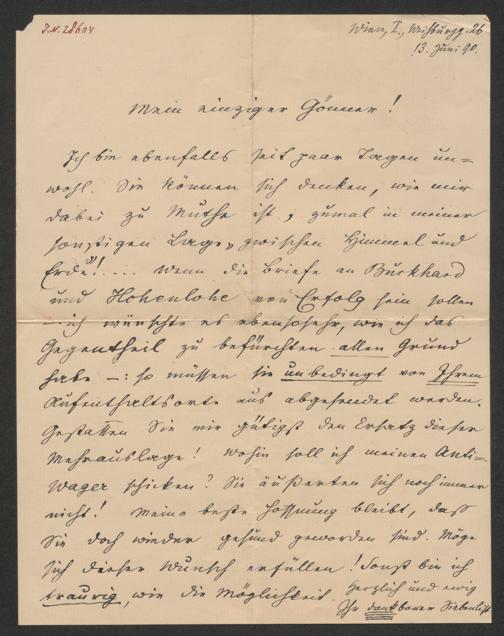 J.N. 28604
Wien, I., Weihburgg. 26
13. Juni 90.
Mein einziger Gönner!
Ich bin ebenfalls seit paar Tagen un=
wohl. Sie können sich denken, wie mir
dabei zu Muthe ist, zumal in meiner
sonstigen Lage „zwischen Himmel und
Erde“!.... Wenn die Briefe an Burkhard
und Hohenlohe von Erfolg sein sollen
– ich wünschte es ebensosehr, wie ich das
Gegentheil zu befürchten allen Grund
habe –: so müssen sie unbedingt von Ihrem
Aufenthaltsorte aus abgesendet werden.
Gestatten Sie mir gütigst den Ersatz dieser
Mehrauslage! Wohin soll ich meinen Anti-
Wager schicken? Sie äußerten sich noch immer
nicht! Meine beste Hoffnung bleibt, daß
Sie doch wieder gesund geworden sind. Möge
sich dieser Wunsch erfüllen! Sonst bin ich
traurig, wie die Möglichkeit. Herzlich und ewig
Ihr dankbarer Siebenlist